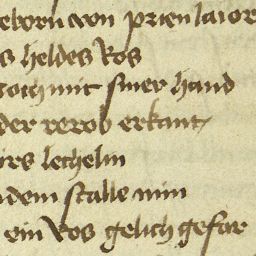 geborn von prienlaiore
s heldes Ros
noch mit siner hand
der rerob erkant
irs lechelin
ndem stalle min
ein Ros gelich gefar